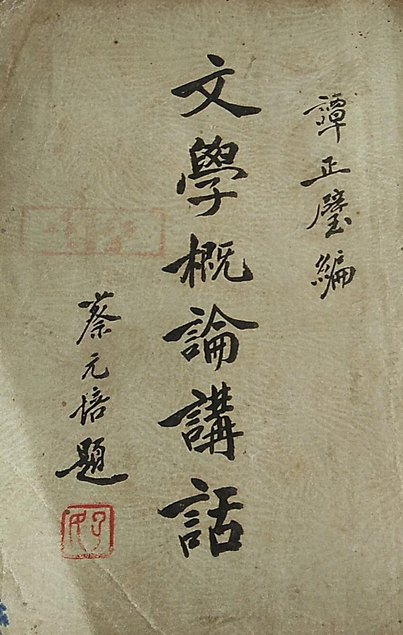 譚正璧編
文學概論講話
蔡元培題